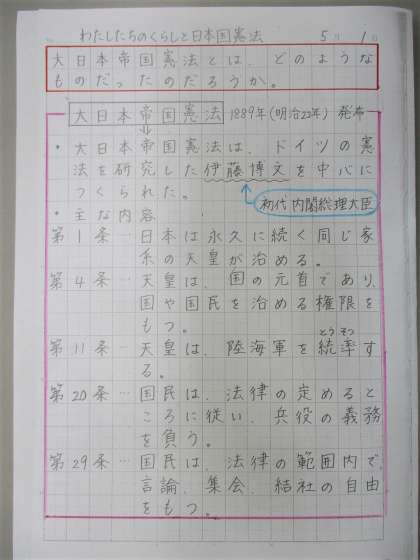 わたしたちのくらしと日本国憲法　5月1日
大日本帝国憲法とは、どのような
ものだったのだろうか。
大日本帝国憲法 1889年(明治22年) 発布
・大日本帝国憲法は、ドイツの憲
法を研究した伊藤博文を中心に
つくられた。
初代内閣総理大臣
・主な内容
第1条…日本は永久に続く同じ家
系の天皇が治める。
第4条…天皇は、国の元首であり、
国や国民を治める権限を
もつ。
とうそつ
第11条…天皇は、陸海軍を統率す
る。
第20条…国民は、法律の定めると
ころに従い、兵役の義務
を負う。
第29条…国民は、法律の範囲内で、
言論、集会、結社の自由
をもつ。